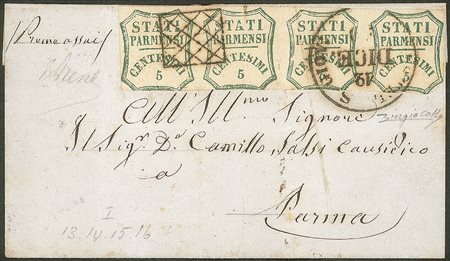 STATI STATI STATI STATI
PARMENSI PARMENSI PARMENSI PARMENSI
CENTESIMI CENTESIMI CENTESIMI CENTESIMI
5 5
12
DICE
(Preme assai)
All'Ill.mo Signore
Il Sig.r D.r Camillo Salsi Causidico
a
Parma
I
13.14.15.16